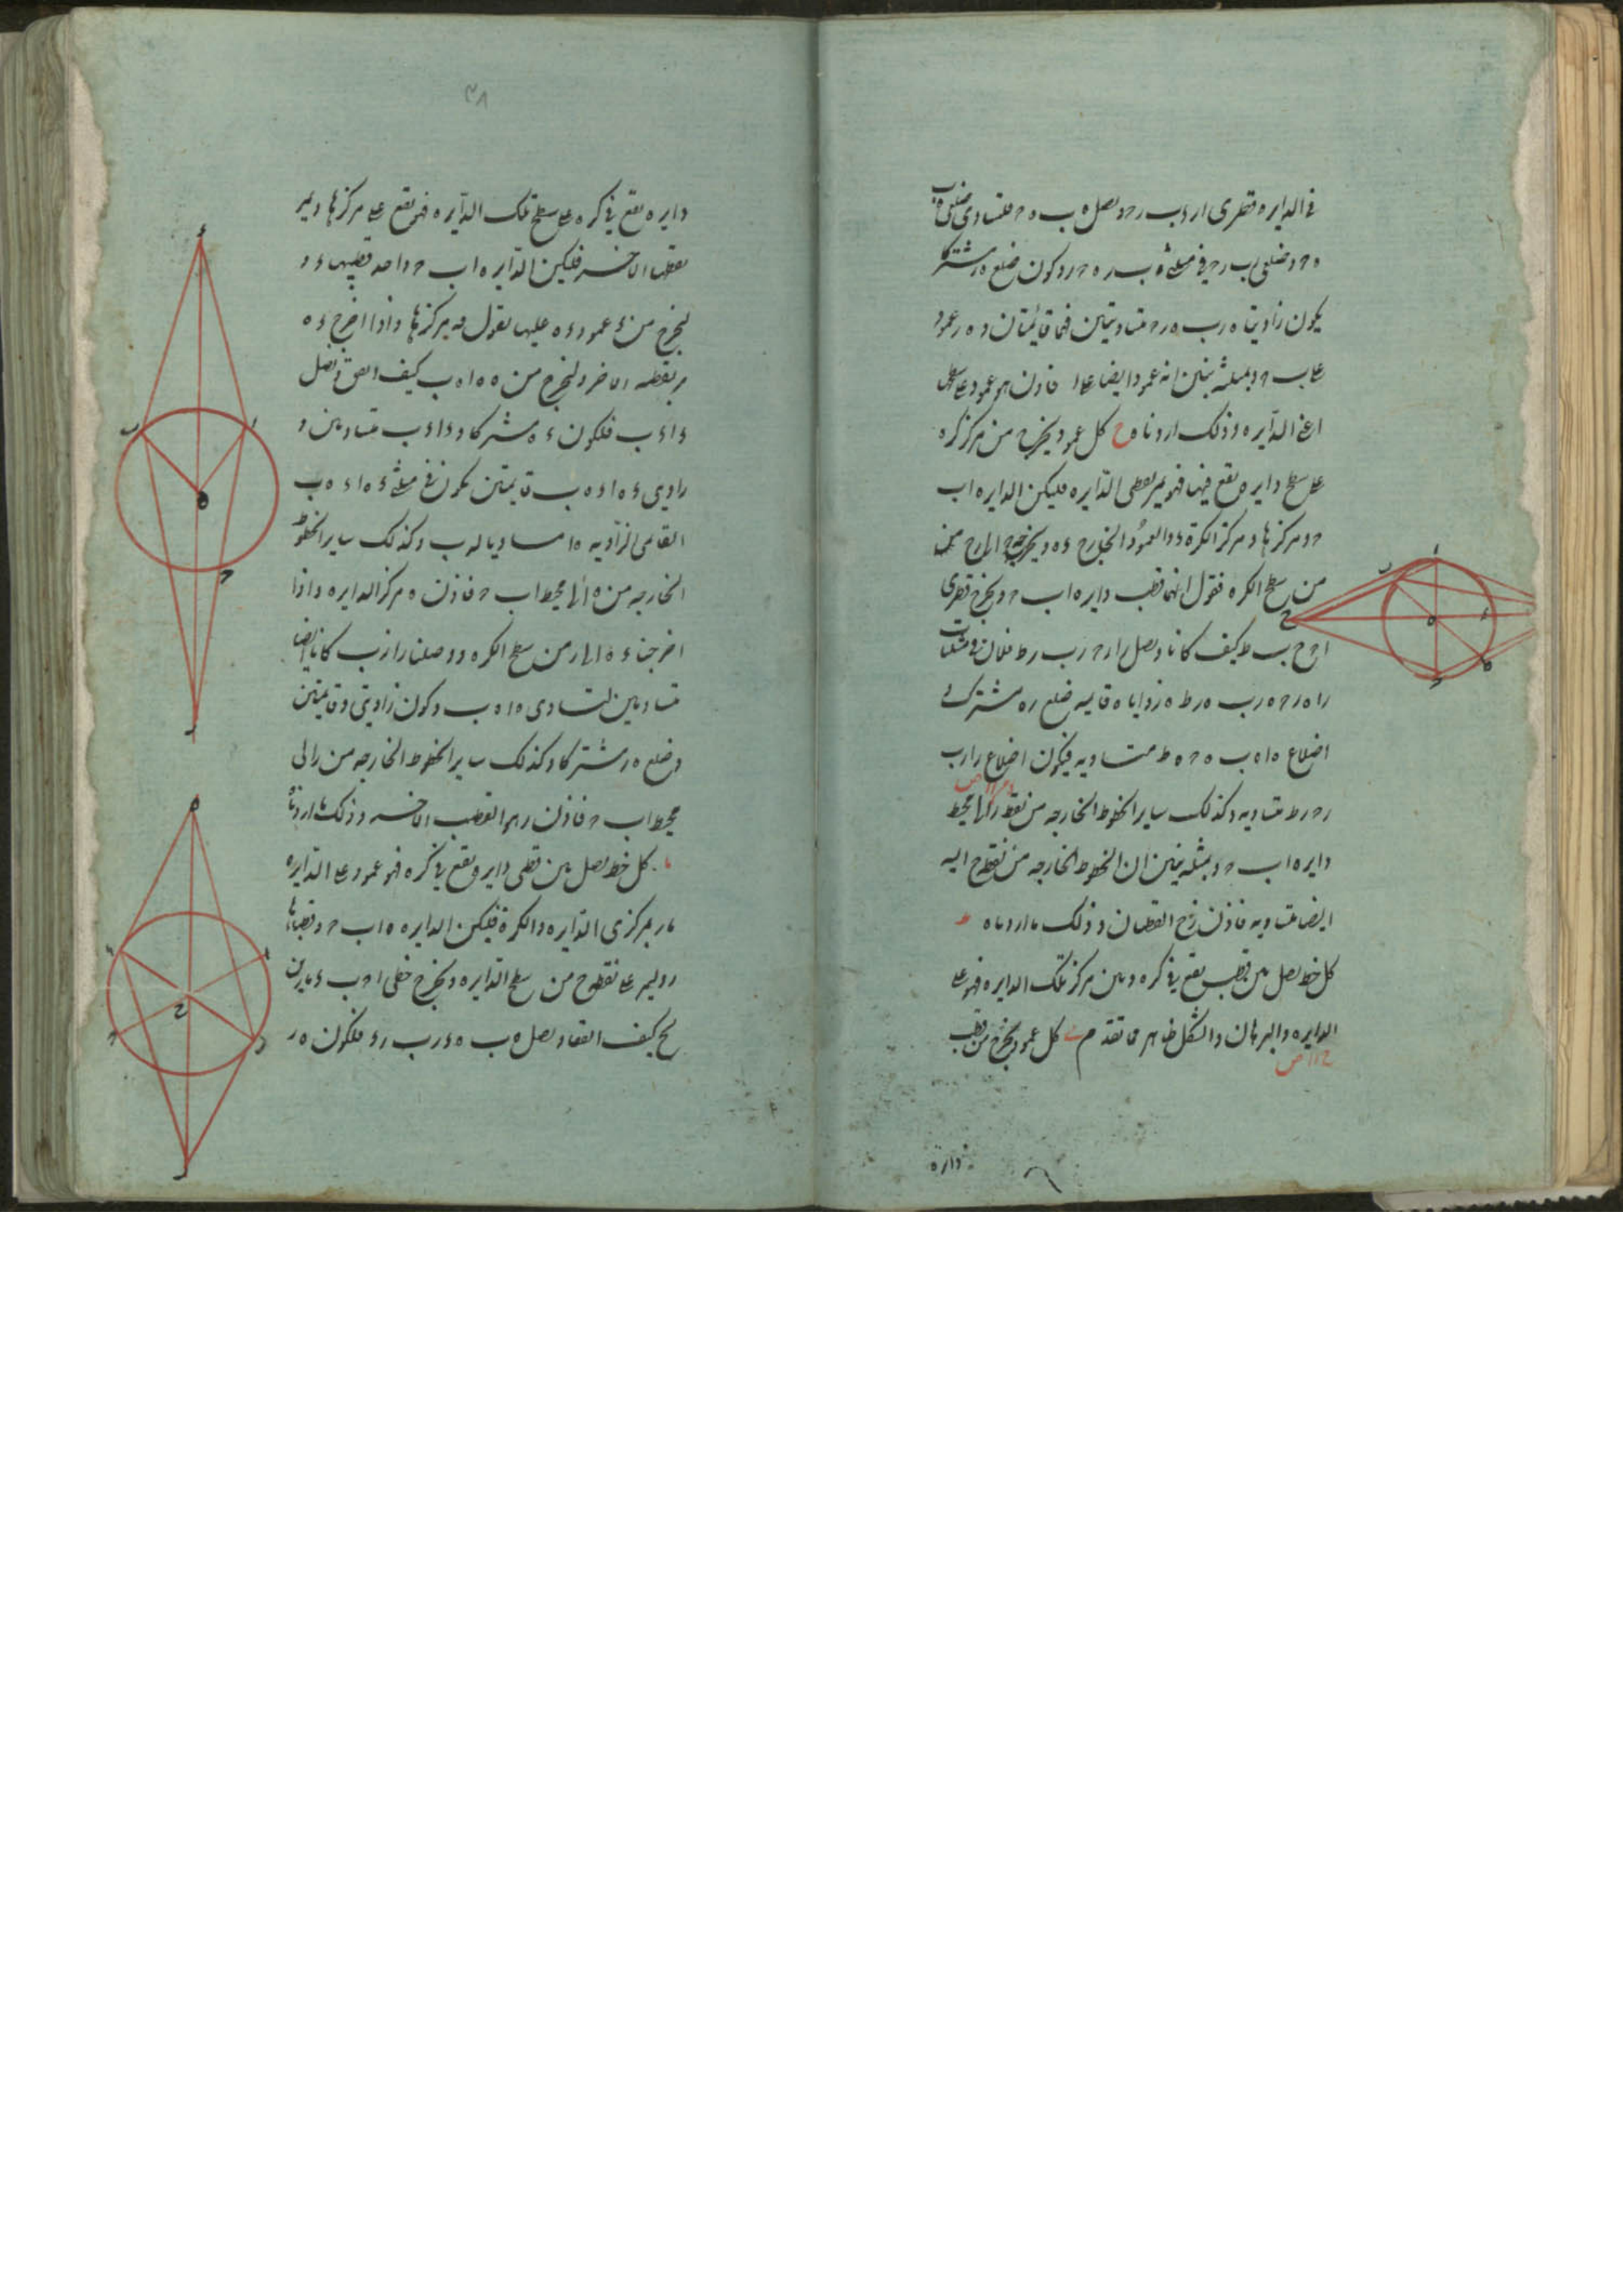 في الدايره قطري ار اب ر ح و نصل ه ب ه ح فلتساوي ضلعي ه ب
ه ح و ضلعي ب ر ح ر في مثلثي ه ب ر ه ح ر و كون ضلع ه ر مشتركا
يكون زاويتا ه ر ب ه ر ح متساويتين فهما قايمتان و ه ر عمود
على ب ح و بمثله نبين انه عمود ايضا على ا فاذن هو عمود على سطح
اعني الدايره و ذلك اردناه ح كل عمود يخرج من مركز كره
على سطح دايره يقع فيها فهو يمر بقطبي الدايره فليكن الدايره اب
ح و مركزها ه و مركز الكرة د و العمود الخارج ء ه و يخرج الى ر ح
من سطح الكره فنقول انهما قطبا دايره اب ح و يخرج قطري
ا ح ب ط كيف كانا و نصل ر ا ر ح ر ب ر ط فلان في مثلثات
ر ا ه ر ح ه ر ب ه ر ط ه زوايا ه قايمه ضلع ر ه مشترك و
اضلاع ه ا ه ب ه ح ه ط متساويه فيكون اضلاع ر ا ر ب
ر ح ر ط متساويه و كذلك ساير الخطوط الخارجه من نقطه ر الى محيط
دايره اب ح و بمثله نبين ان الخطوط الخارجه من نقطه ح اليه
ايضا متساويه فاذن ر ح القطبان و ذلك ما اردناه ط
كل خط يصل بين قطب يقع في كره و بين مركز تلك الدايره فهو على
الدايره و البرهان و الشكل ظاهر مما تقدم ي كل عمود يخرج من قطب
دايره
٣٨
دايره يقع في كره على سطح تلك الدايره فهو يقع على مركزها و يمر
بقطبها الاخر فليكن الدايره اب ح و احد قطبيها ء و
ليخرج من ء عمود ء ه عليها نقول فه مركزها و اذا اخرج ء ه
مر بقطبه الاخر و ليخرج من ه ه ا ه ب كيف اتفق و نصل
ء ا ء ب فلكون ء ه مشتركا و ء ا ء ب متساويين و
زاويتي ء ه ا ء ه ب قايمتين يكون في مثلثي ء ه ا ء ه ب
القايمي الزاويه ه ا مساويا له ب و كذلك ساير الخطوط
الخارجه من ه الى محيط اب ح فاذن ه مركز الدايره و اذا
اخرجنا ء ه الى ر من سطح الكره و وصلنا ر ا ر ب كانا ايضا
متساويين لتساوي ه ا ه ب و كون زاويتي ه قايمتين
و ضلع ه ر مشتركا و كذلك ساير الخطوط الخارجه من ر الى
محيط اب ح فاذن ر هو القطب الاخر و ذلك ما اردناه
يا كل خط يصل بين قطبي دايره يقع في كره فهو عمود على الدايره
مار بمركزي الدايره و الكرة فليكن الدايره اب ح و قطباها
ه ر و ليمر على نقطه ح من سطح الدايره و يخرج خطي ا ح ب ء مارين
بح كيف اتفقا و نصل ه ب ه ء ر ب ر ء فلكون ه ر